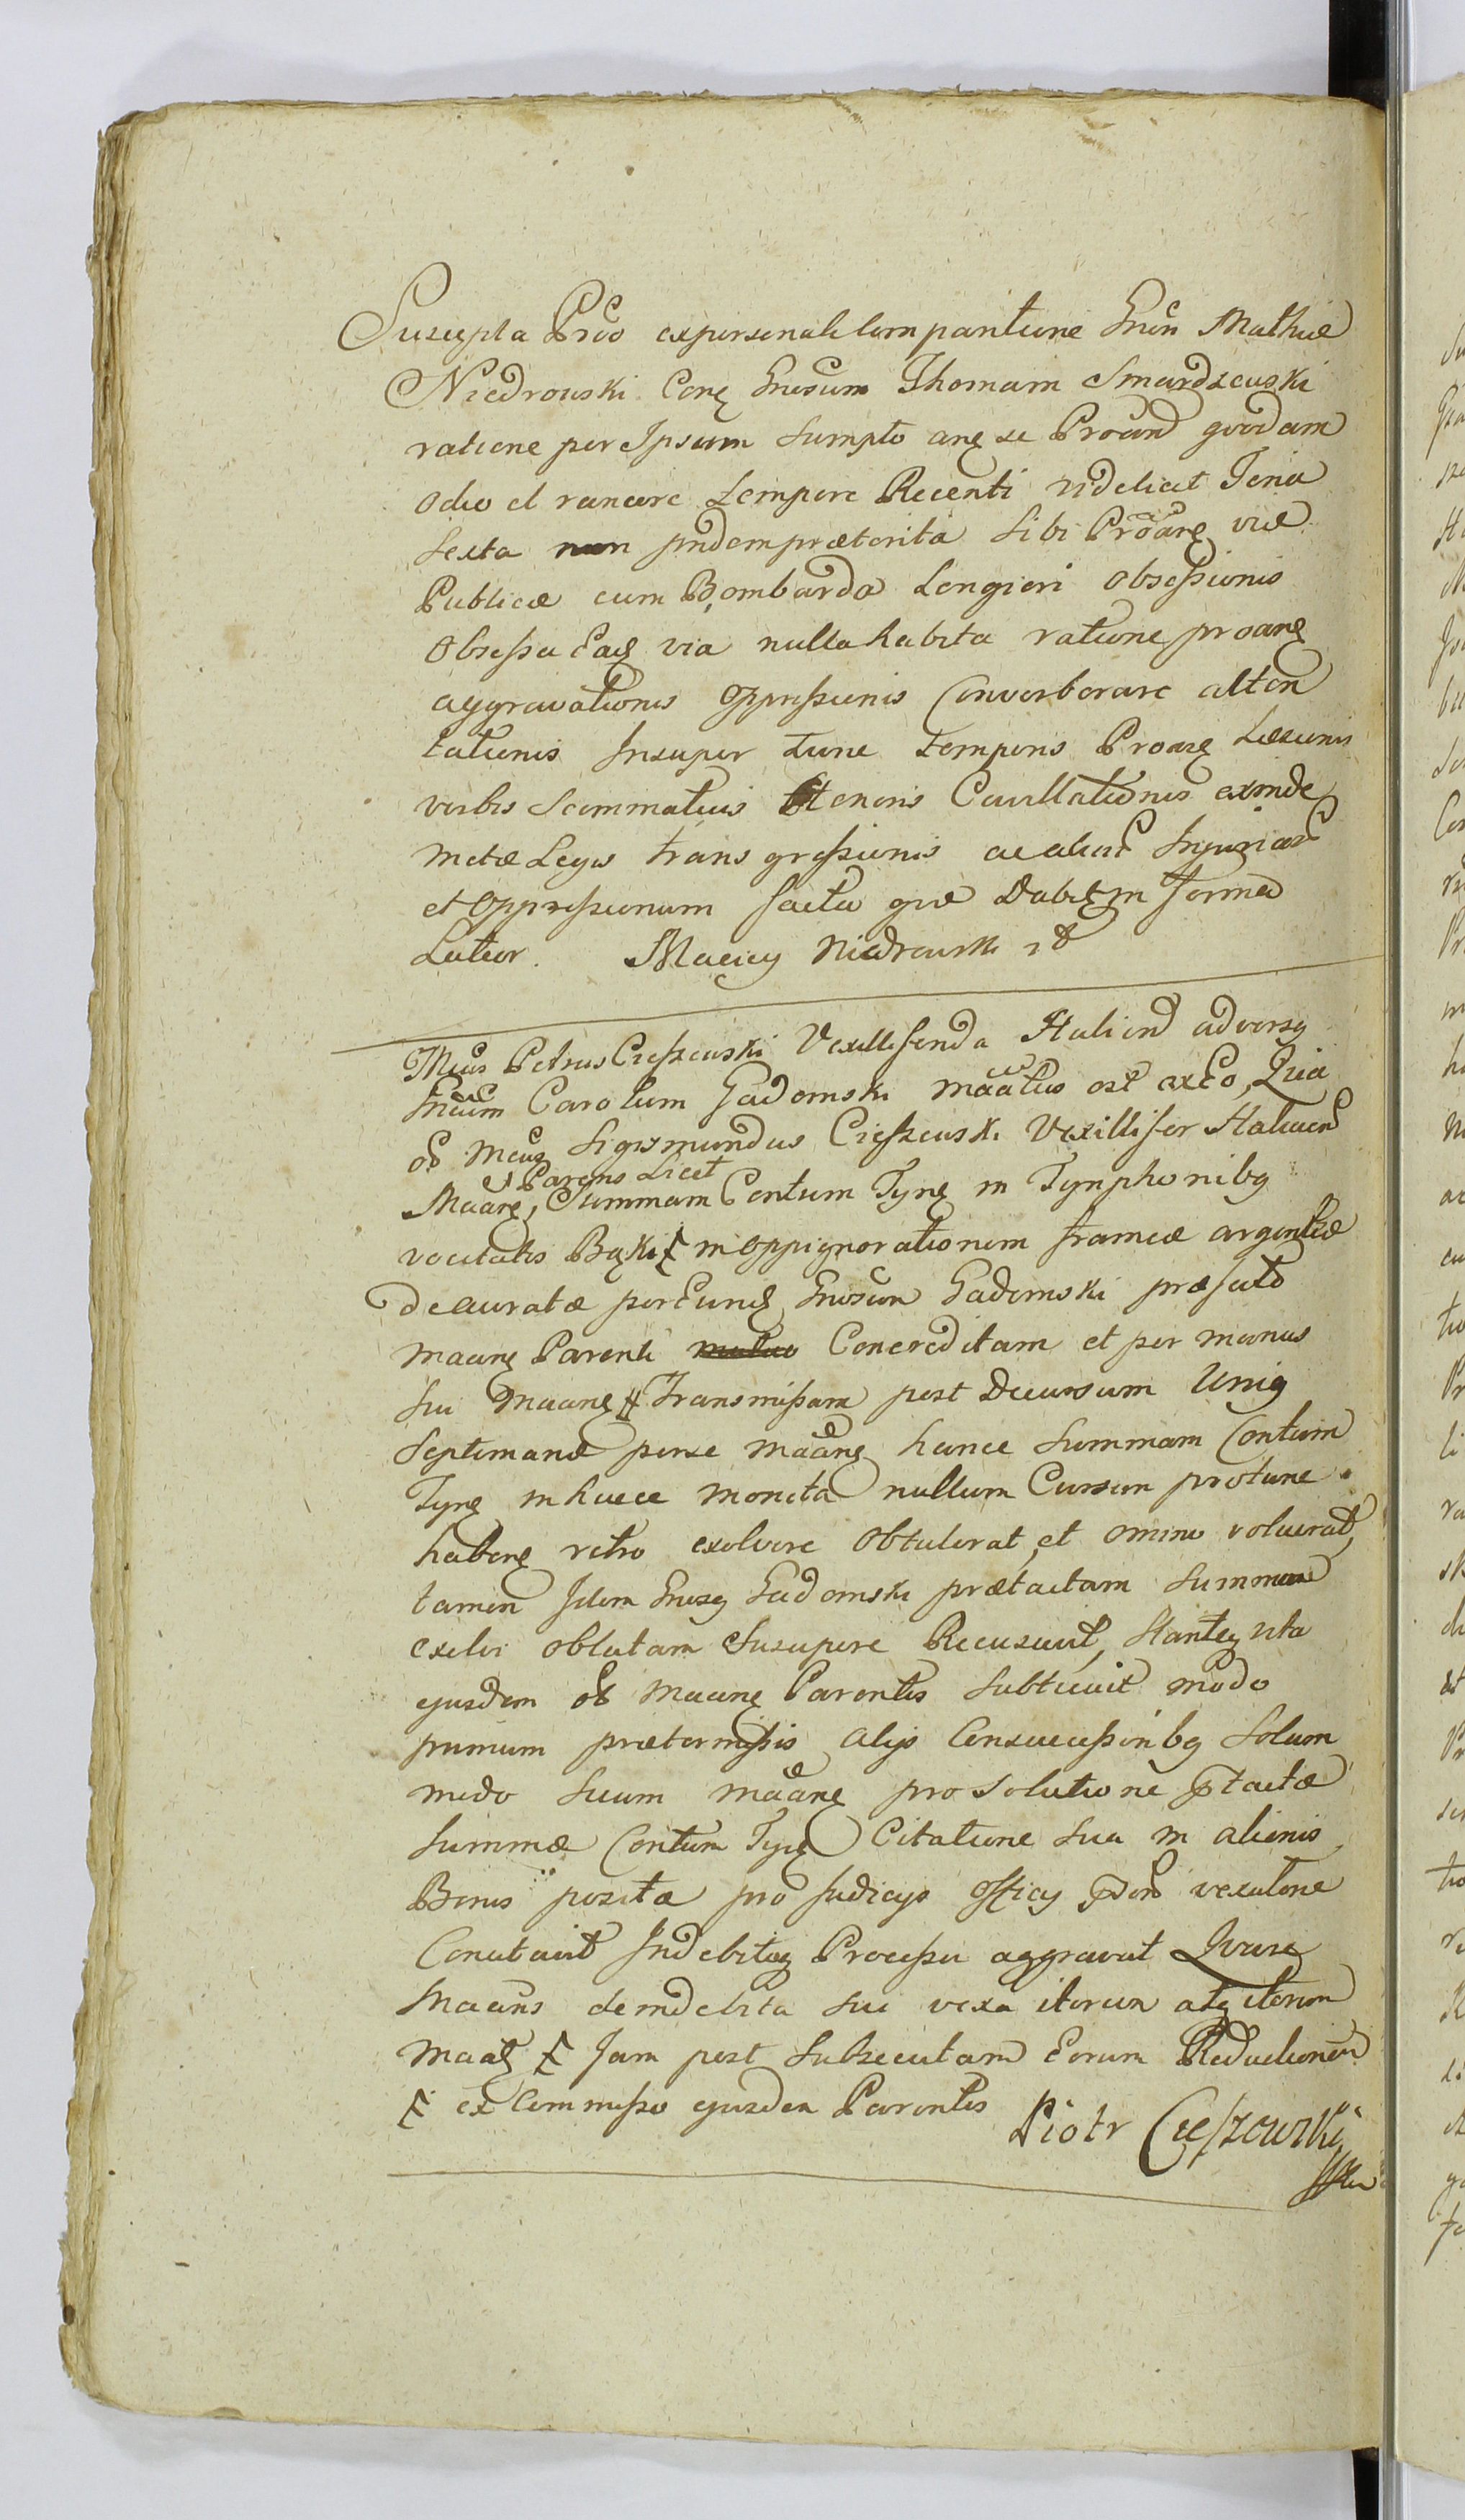 Suscepta Prõo ex personali Comparitione Gnõsi Mathiæ
Niedrowski Conq Gnosum Thomam Smardzewski
ratione per Ipsum Sumpto anq se Proand quodam
odio et rancore tempore Recenti videlicet Feria
Sexta pridem præterita Sibi Proãnq viæ
Publicæ cum Bombarda Longiori Obsessionis
Obsessa Eaq via nulla habita ratione proanq
aggravationis oppressionis Converberare atten
tationis Insuper tunc temporis Proanq Læsionis
verbis Scommaticis Cavillationis exinde
metæ Legis transgressionis ac aliar Injuriar
et Oppressionum facta qua Dabit in forma
Latior. Maciey Niedrowski
Mcus Petrus Cieszewski Vexilliferida Haliciens adversq
Gnosum Carolum Gadomski maãtus est exEo, Quia
oδ Mcus Sigismundus Cieszewski Vexillifer Halicien
Parens Licet
Maanq, Summam Centum Tynq in Tynphonibq
vocitatis Bąki in oppignorationem frameæ argenteæ
deauratæ per Eundq Gnosum Gadomski præfato
maanq Parenti Concreditam et per manus
Sui Maanq Transmissam post Decursum Uniq
Septimanæ per se maãnq hance Summam Centum
Tynq in hacce moneta nullum Cursum protunc
habenq retro exolvere Obtulerat, et omino voluerat,
tamen Idem Gnosq Gadomski prætactam Summam
exolvi oblatam Suscipere Recusavit, Stanteq vita
ejusdem oδ maanq Parentis Subticuit modo
primum prætermissis alijs Consuccessoribq Solum
modo Suum maãnq pro Solutione ptactæ
Summæ Centum Tynq Citatione Sua in alienis
Bonis posita pro Judicijs Officij vexatione
Conatavit Indebitoq Processu aggravat Quare
Maans de indebita Sui vexa iterum atq iterum
maatq Jam post Subsecutam Eorum Reductionem
ex Commisso ejusdem Parentis Piotr Cieszowski